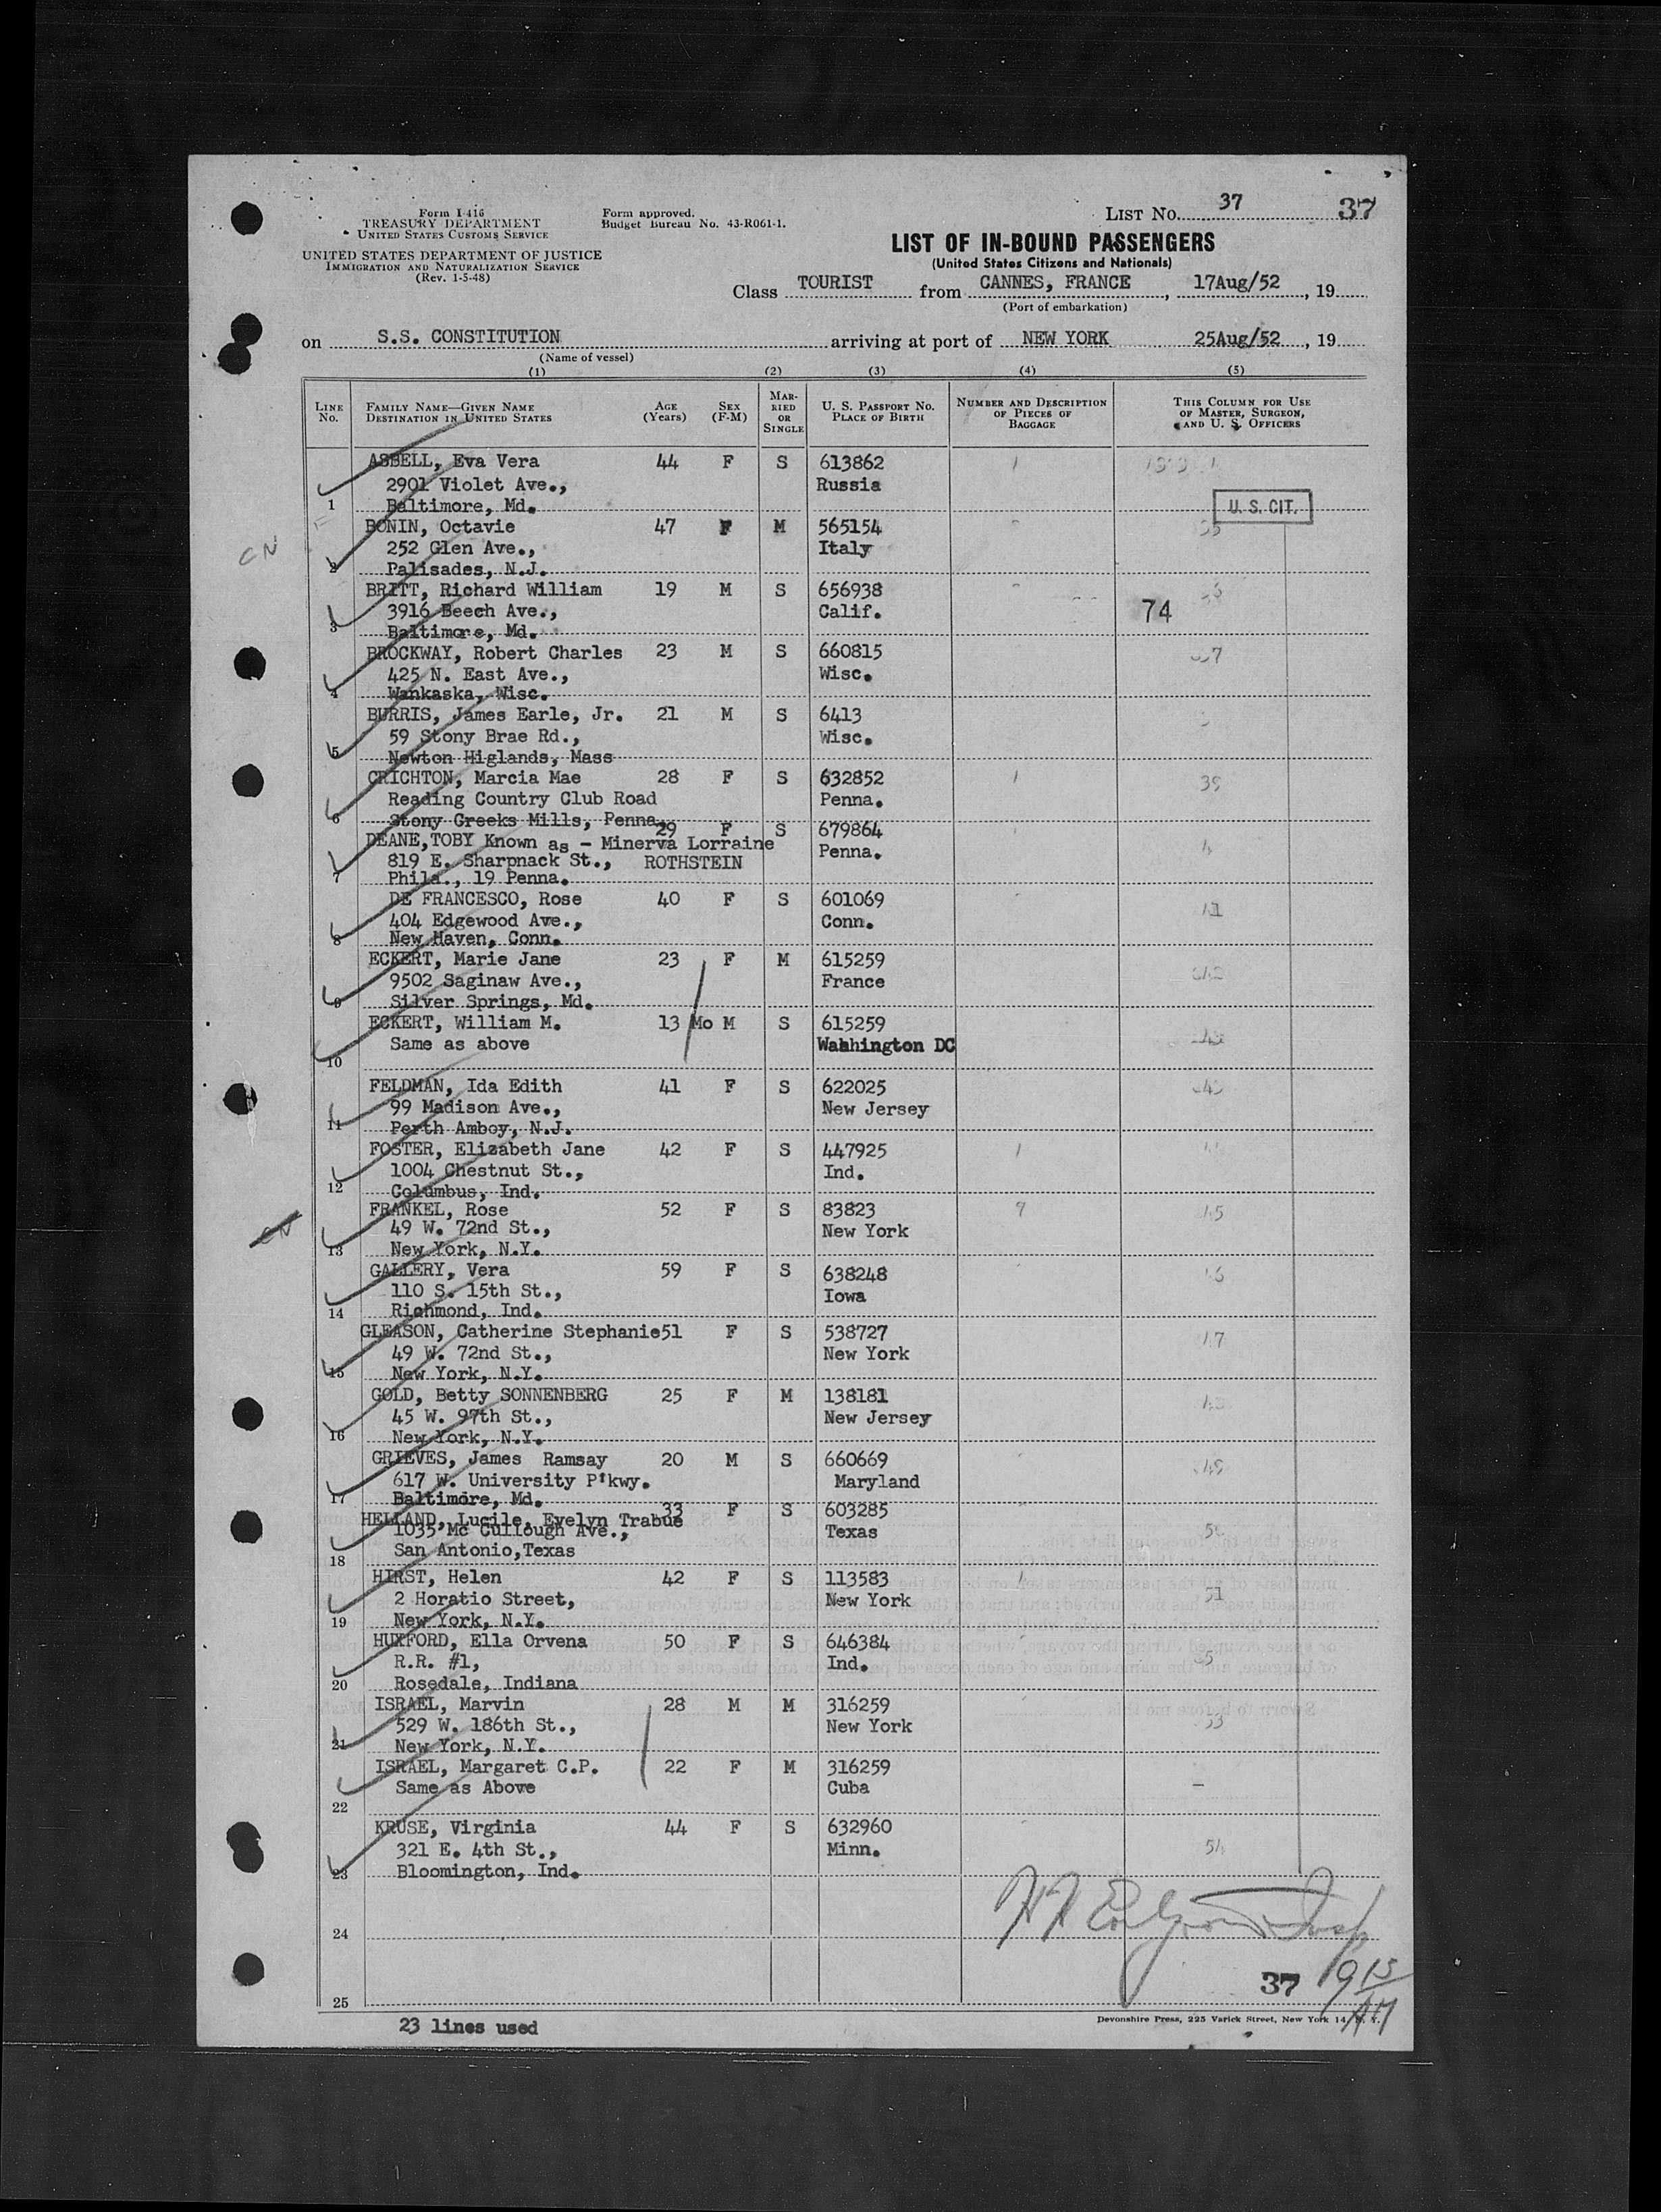 Form I-416
TREASURY DEPARTMENT
UNITED STATES CUSTOMS SERVICE
UNITED STATES DEPARTMENT OF JUSTICE
IMMIGRATION AND NATURALIZATION SERVICE
(Rev. 1-5-48)
Form approved.
Budget Bureau No. 43-R061-1.
LIST NO. 37 37
LIST OF IN-BOUND PASSENGERS
(United States Citizens and Nationals)
Class TOURIST from CANNES, FRANCE, 17Aug/52, 19
(Port of embarkation)
on S.S. CONSTITUTION arriving at port of NEW YORK 25Aug/52, 19
(Name of vessel)
(1) (2) (3) (4) (5)
LINE No.
FAMILY NAME—GIVEN NAME
DESTINATION IN UNITED STATES
AGE (Years)
SEX (F-M)
MARRIED OR SINGLE
U. S. PASSPORT NO.
PLACE OF BIRTH
NUMBER AND DESCRIPTION OF PIECES OF BAGGAGE
THIS COLUMN FOR USE OF MASTER, SURGEON, AND U. S. OFFICERS
ASBELL, Eva Vera 44 F S 613862 1
2901 Violet Ave., Russia
1 Baltimore, Md. U. S. CIT.
BONIN, Octavie 47 F M 565154
CN 252 Glen Ave., Italy
2 Palisades, N.J.
BRITT, Richard William 19 M S 656938
3916 Beech Ave., Calif. 74
3 Baltimore, Md.
BROCKWAY, Robert Charles 23 M S 660815
425 N. East Ave., Wisc.
4 Wankaska, Wisc.
BURRIS, James Earle, Jr. 21 M S 6413
59 Stony Brae Rd., Wisc.
5 Newton Higlands, Mass
CRICHTON, Marcia Mae 28 F S 632852 1 39
Reading Country Club Road Penna.
6 Stony Creeks Mills, Penna.
29 F S 679864
DEANE,TOBY Known as - Minerva Lorraine Penna.
819 E. Sharpnack St., ROTHSTEIN
7 Phila., 19 Penna.
DE FRANCESCO, Rose 40 F S 601069
404 Edgewood Ave., Conn.
8 New Haven, Conn.
ECKERT, Marie Jane 23 F M 615259
9502 Saginaw Ave., France
9 Silver Springs, Md.
ECKERT, William M. 13 Mo M S 615259
Same as above Wahhington DC
10
FELDMAN, Ida Edith 41 F S 622025
99 Madison Ave., New Jersey
11 Perth Amboy, N.J.
FOSTER, Elizabeth Jane 42 F S 447925 1
1004 Chestnut St., Ind.
12 Columbus, Ind.
FRANKEL, Rose 52 F S 83823 7
CN 49 W. 72nd St., New York
13 New York, N.Y.
GALLERY, Vera 59 F S 638248
110 S. 15th St., Iowa
14 Richmond, Ind.
GLEASON, Catherine Stephanie51 F S 538727
49 W. 72nd St., New York
15 New York, N.Y.
GOLD, Betty SONNENBERG 25 F M 138181
45 W. 97th St., New Jersey
16 New York, N.Y.
GRIEVES, James Ramsay 20 M S 660669 49
617 W. University P'kwy. Maryland
17 Baltimore, Md.
HELLAND, Lucile, Evelyn Trabue 33 F S 603285
1035 Mc Cullough Ave., Texas
18 San Antonio,Texas
HIRST, Helen 42 F S 113583 1
2 Horatio Street, New York 51
19 New York, N.Y.
HUXFORD, Ella Orvena 50 F S 646384
R.R. #1, Ind.
20 Rosedale, Indiana
ISRAEL, Marvin 28 M M 316259
529 W. 186th St., New York 53
21 New York, N.Y.
ISRAEL, Margaret C.P. 22 F M 316259
Same as Above Cuba –
22
KRUSE, Virginia 44 F S 632960
321 E. 4th St., Minn. 54
23 Bloomington, Ind.
24
37 915
25 AM
23 lines used
Devonshire Press, 225 Varick Street, New York 14, N. Y.